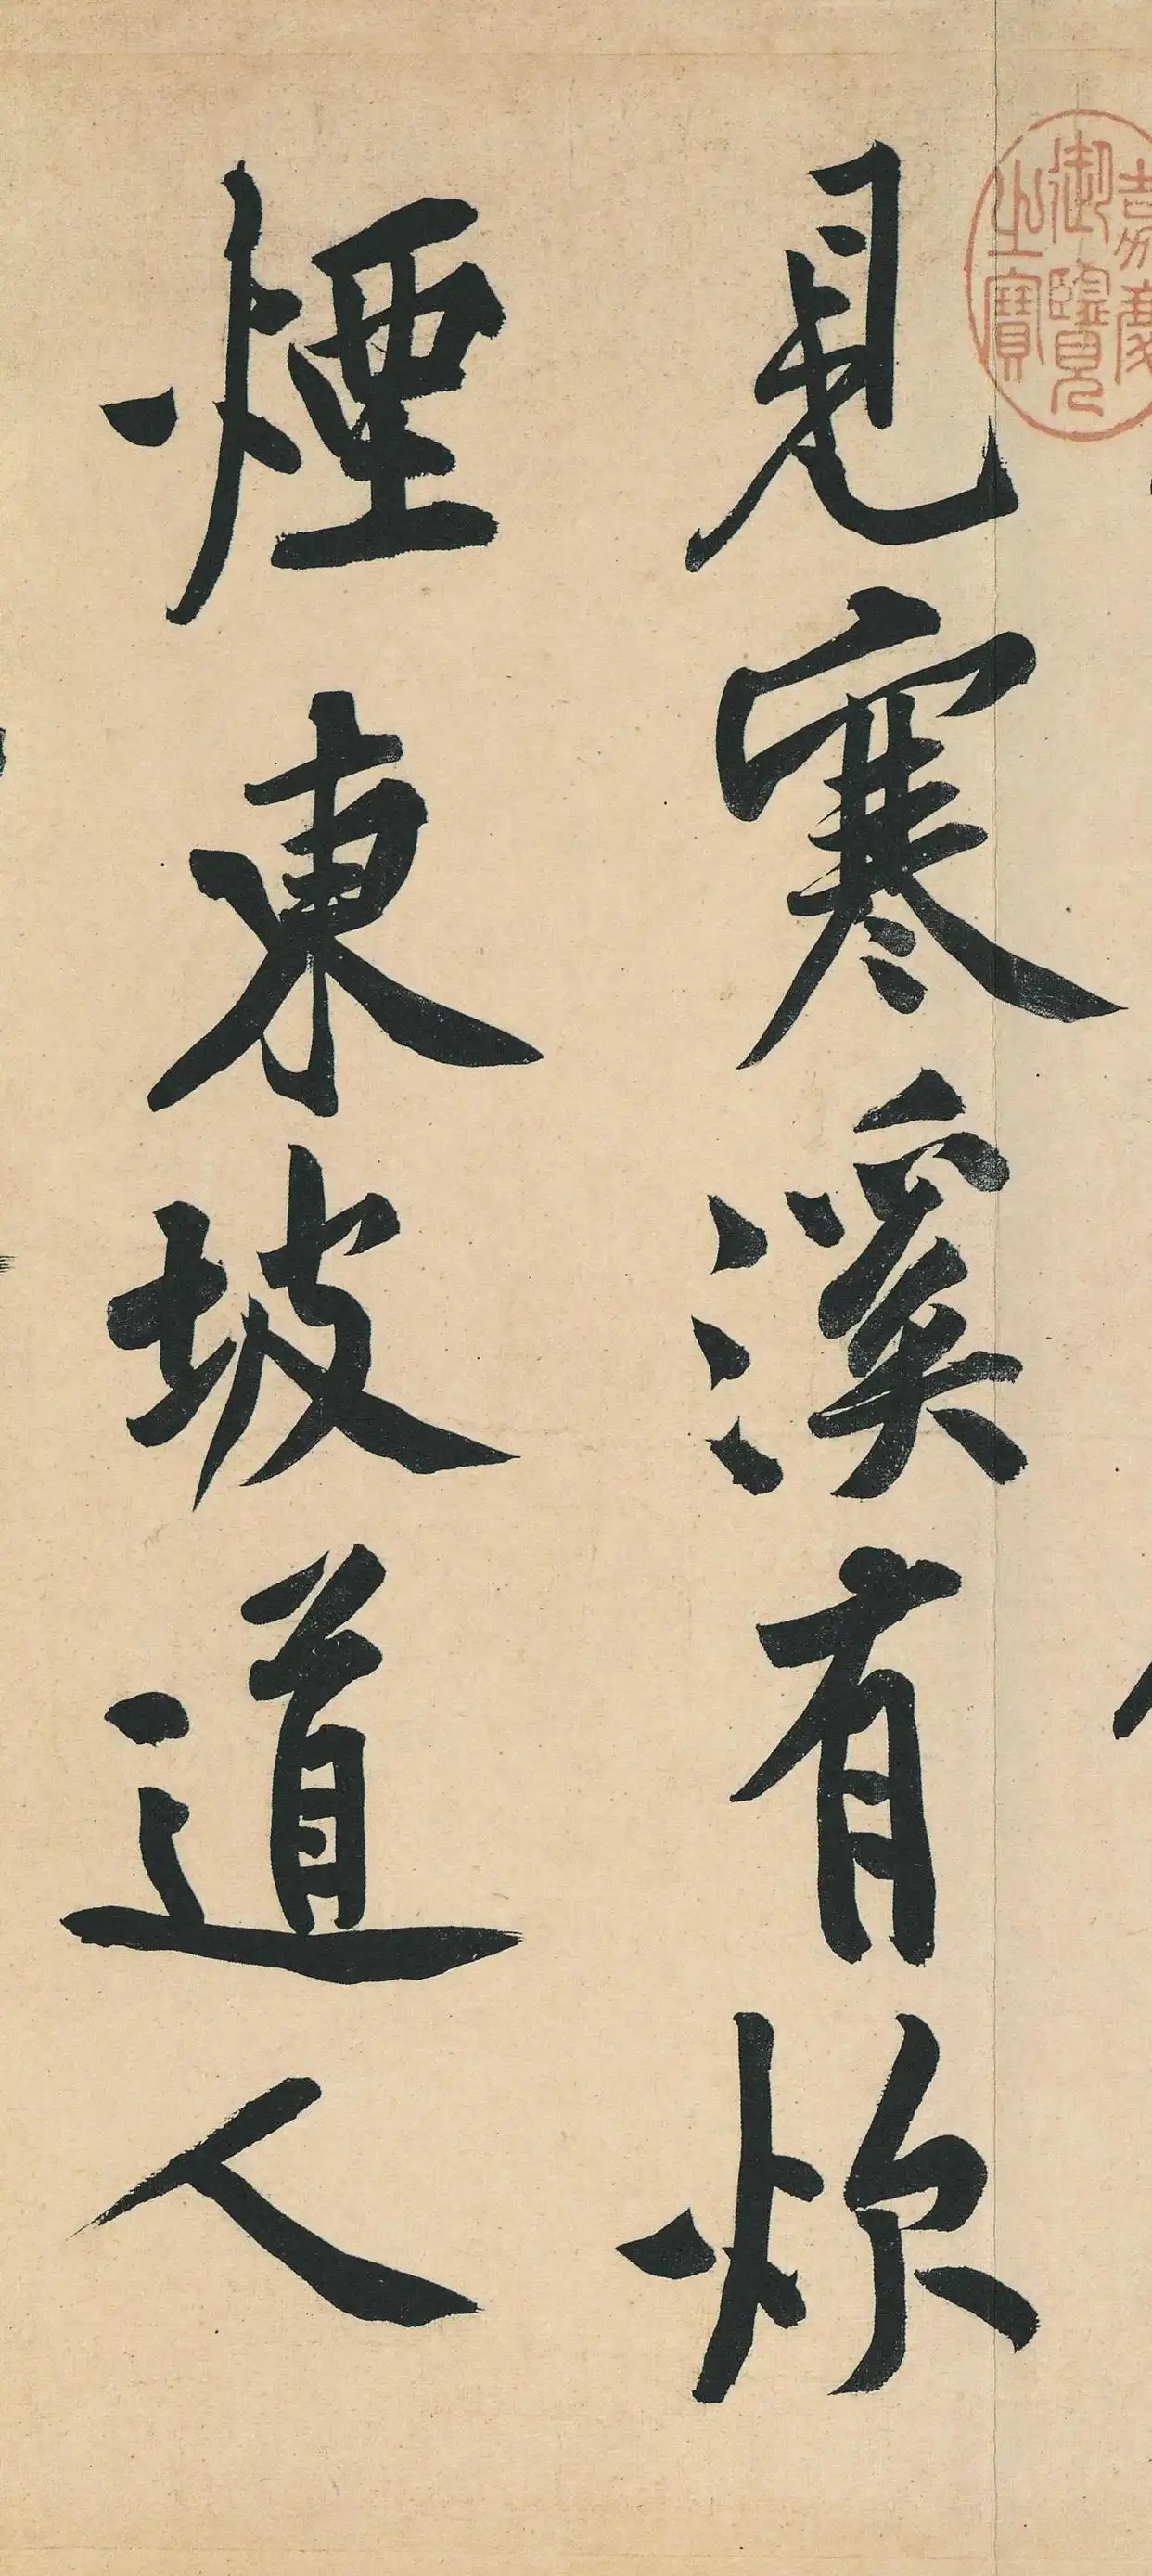 見寒溪有炊
煙東坡道人
嘉慶
御覽
之寶